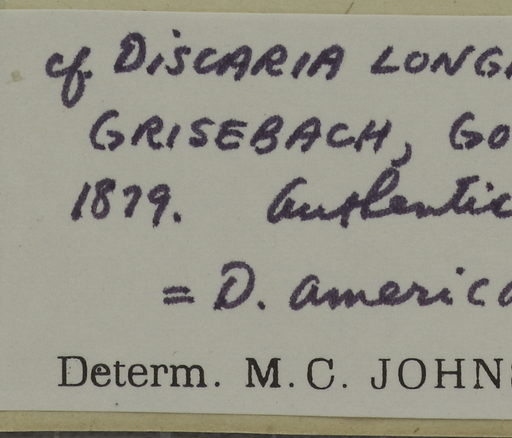 cf. DISCARIA LONGI
GRISEBACH, GO
1879. Authentic
= D. america
Determ. M.C. JOHNS